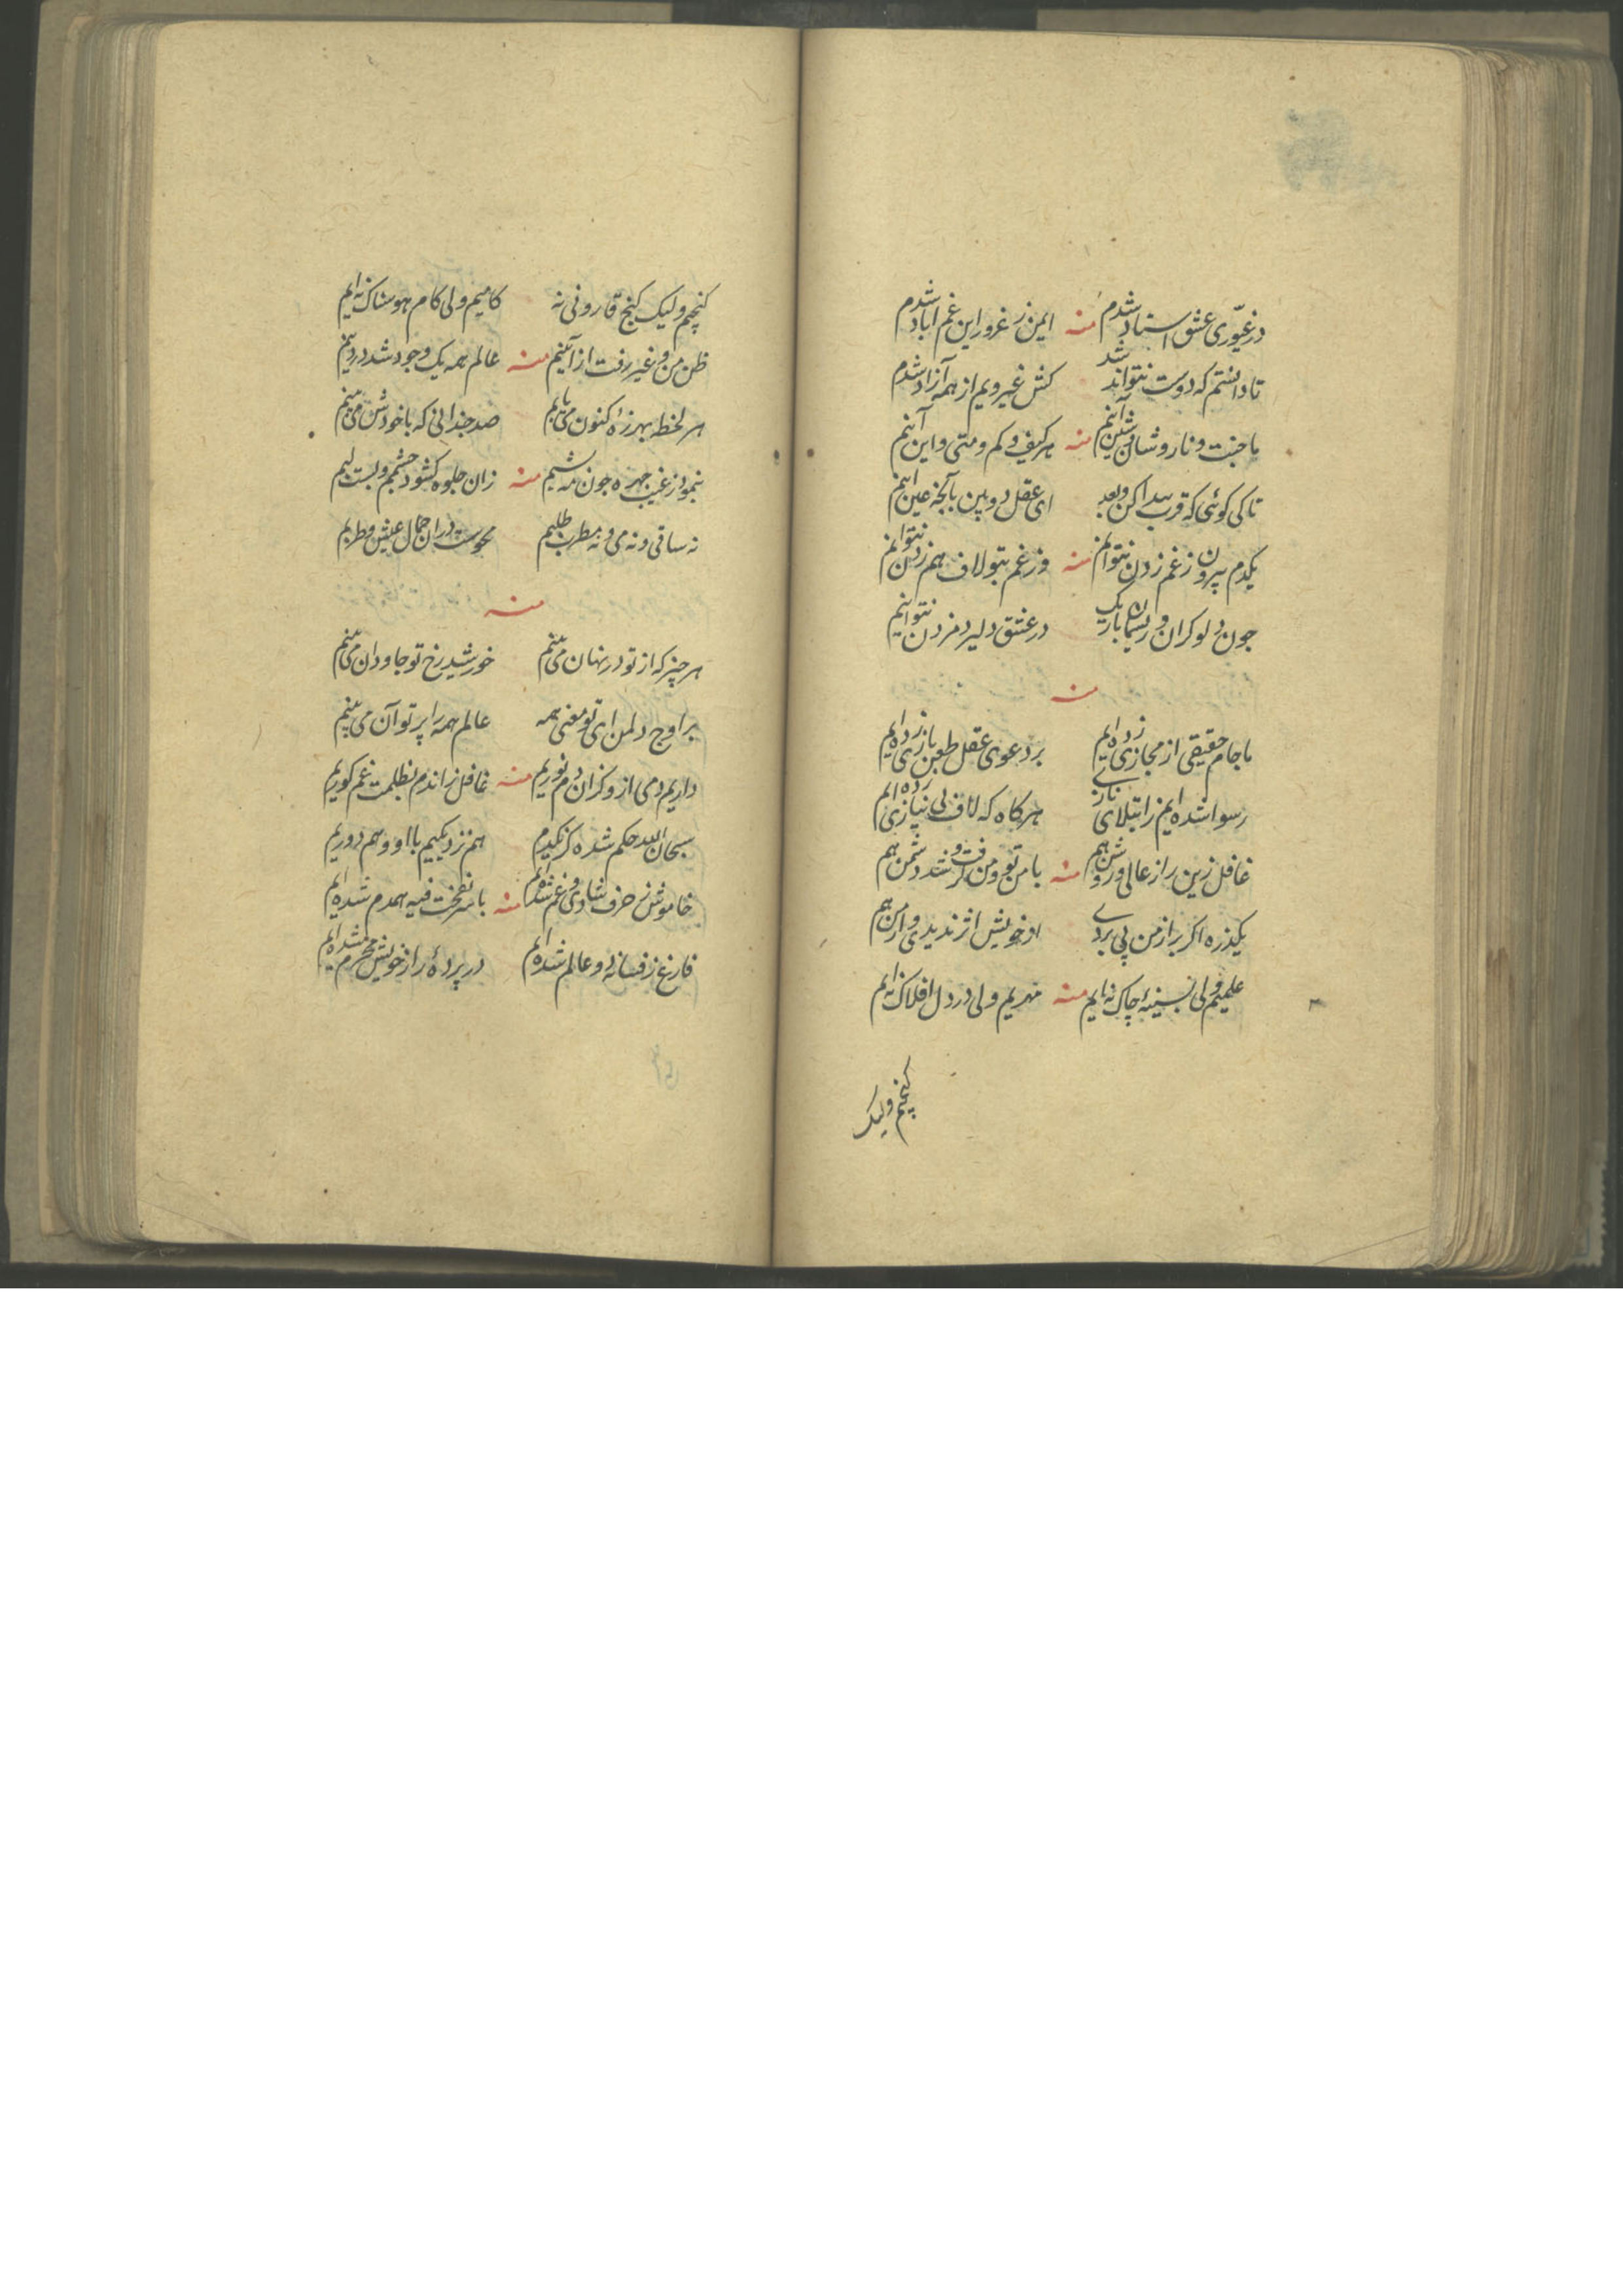 در غیّوری عشق استاد شدم منه ایمن ز غرور این غم اباد شدم
تا دانستم که دوست نتواند شد کش غیر ویم از همه آزاد شدم
با جنت و نار و شان و شین آئیم منه هر کیف و کم و متی و این آئیم
تا کی کوئی که قرب پیدا کن و بعد ای عقل دو بین بآنچه عین آئیم
یکدم بیرون ز غم زدن نتوانم منه وز غم بتو لاف هم زدن نتوانم
چون دلو کران و ریسمان باریک در عشق دلیر دم زدن نتوانیم
منه
ما جام حقیقی از مجازی زده ایم بر دعوی عقل طعن بازی زده ایم
رسوا شده ایم ز ابتلای نازی هر کاه که لاف بی نیازی زده ایم
غافل زین راز عالی و روشن هم منه با من تو و من رفت و کر شد دشمن هم
یکذره اکر براز من پی بردی از خویش اثر ندیدی و از من هم
علمیم ولی بسینهٔ چاک نه ایم منه مهریم ولی در دل افلاک نه ایم
کنجیم ولیک
کنجیم ولیک کنج قارونی نه کامیم ولی کام هوسناک نه ایم
ظن من و غیر رفت از آئینم منه عالم همه یک وجود شد در دینم
هر لحظه بهر ذرهٔ کنون می یابم صد جندانی که با خودش می بینم
بنمود ز غیب چهره چون مه شبیم منه زان جلوه کشود چشم و بست لبیم
نه ساقی و نه می و نه مطرب طلبیم محوست در اجمال عیش و طربم
منه
هر چیز که از تو در نهان می بینم خورشید رخ تو جاودان می بینم
بر اوج دلمن ای تو معنی همه عالم همه را پرتو آن می بینم
داریم دمی از و کزان دم نوریم منه غافل زاندم بظلمت غم کوریم
سبحان الله حکم شده کز یکدم هم نزدیکیم با او و هم دوریم
خاموش ز حرف شادی و غم شده ایم منه با سر نفخت فیه همدم شده ایم
فارغ ز فسانهٔ دو عالم شده ایم در پردهٔ راز خویش محرم شده ایم